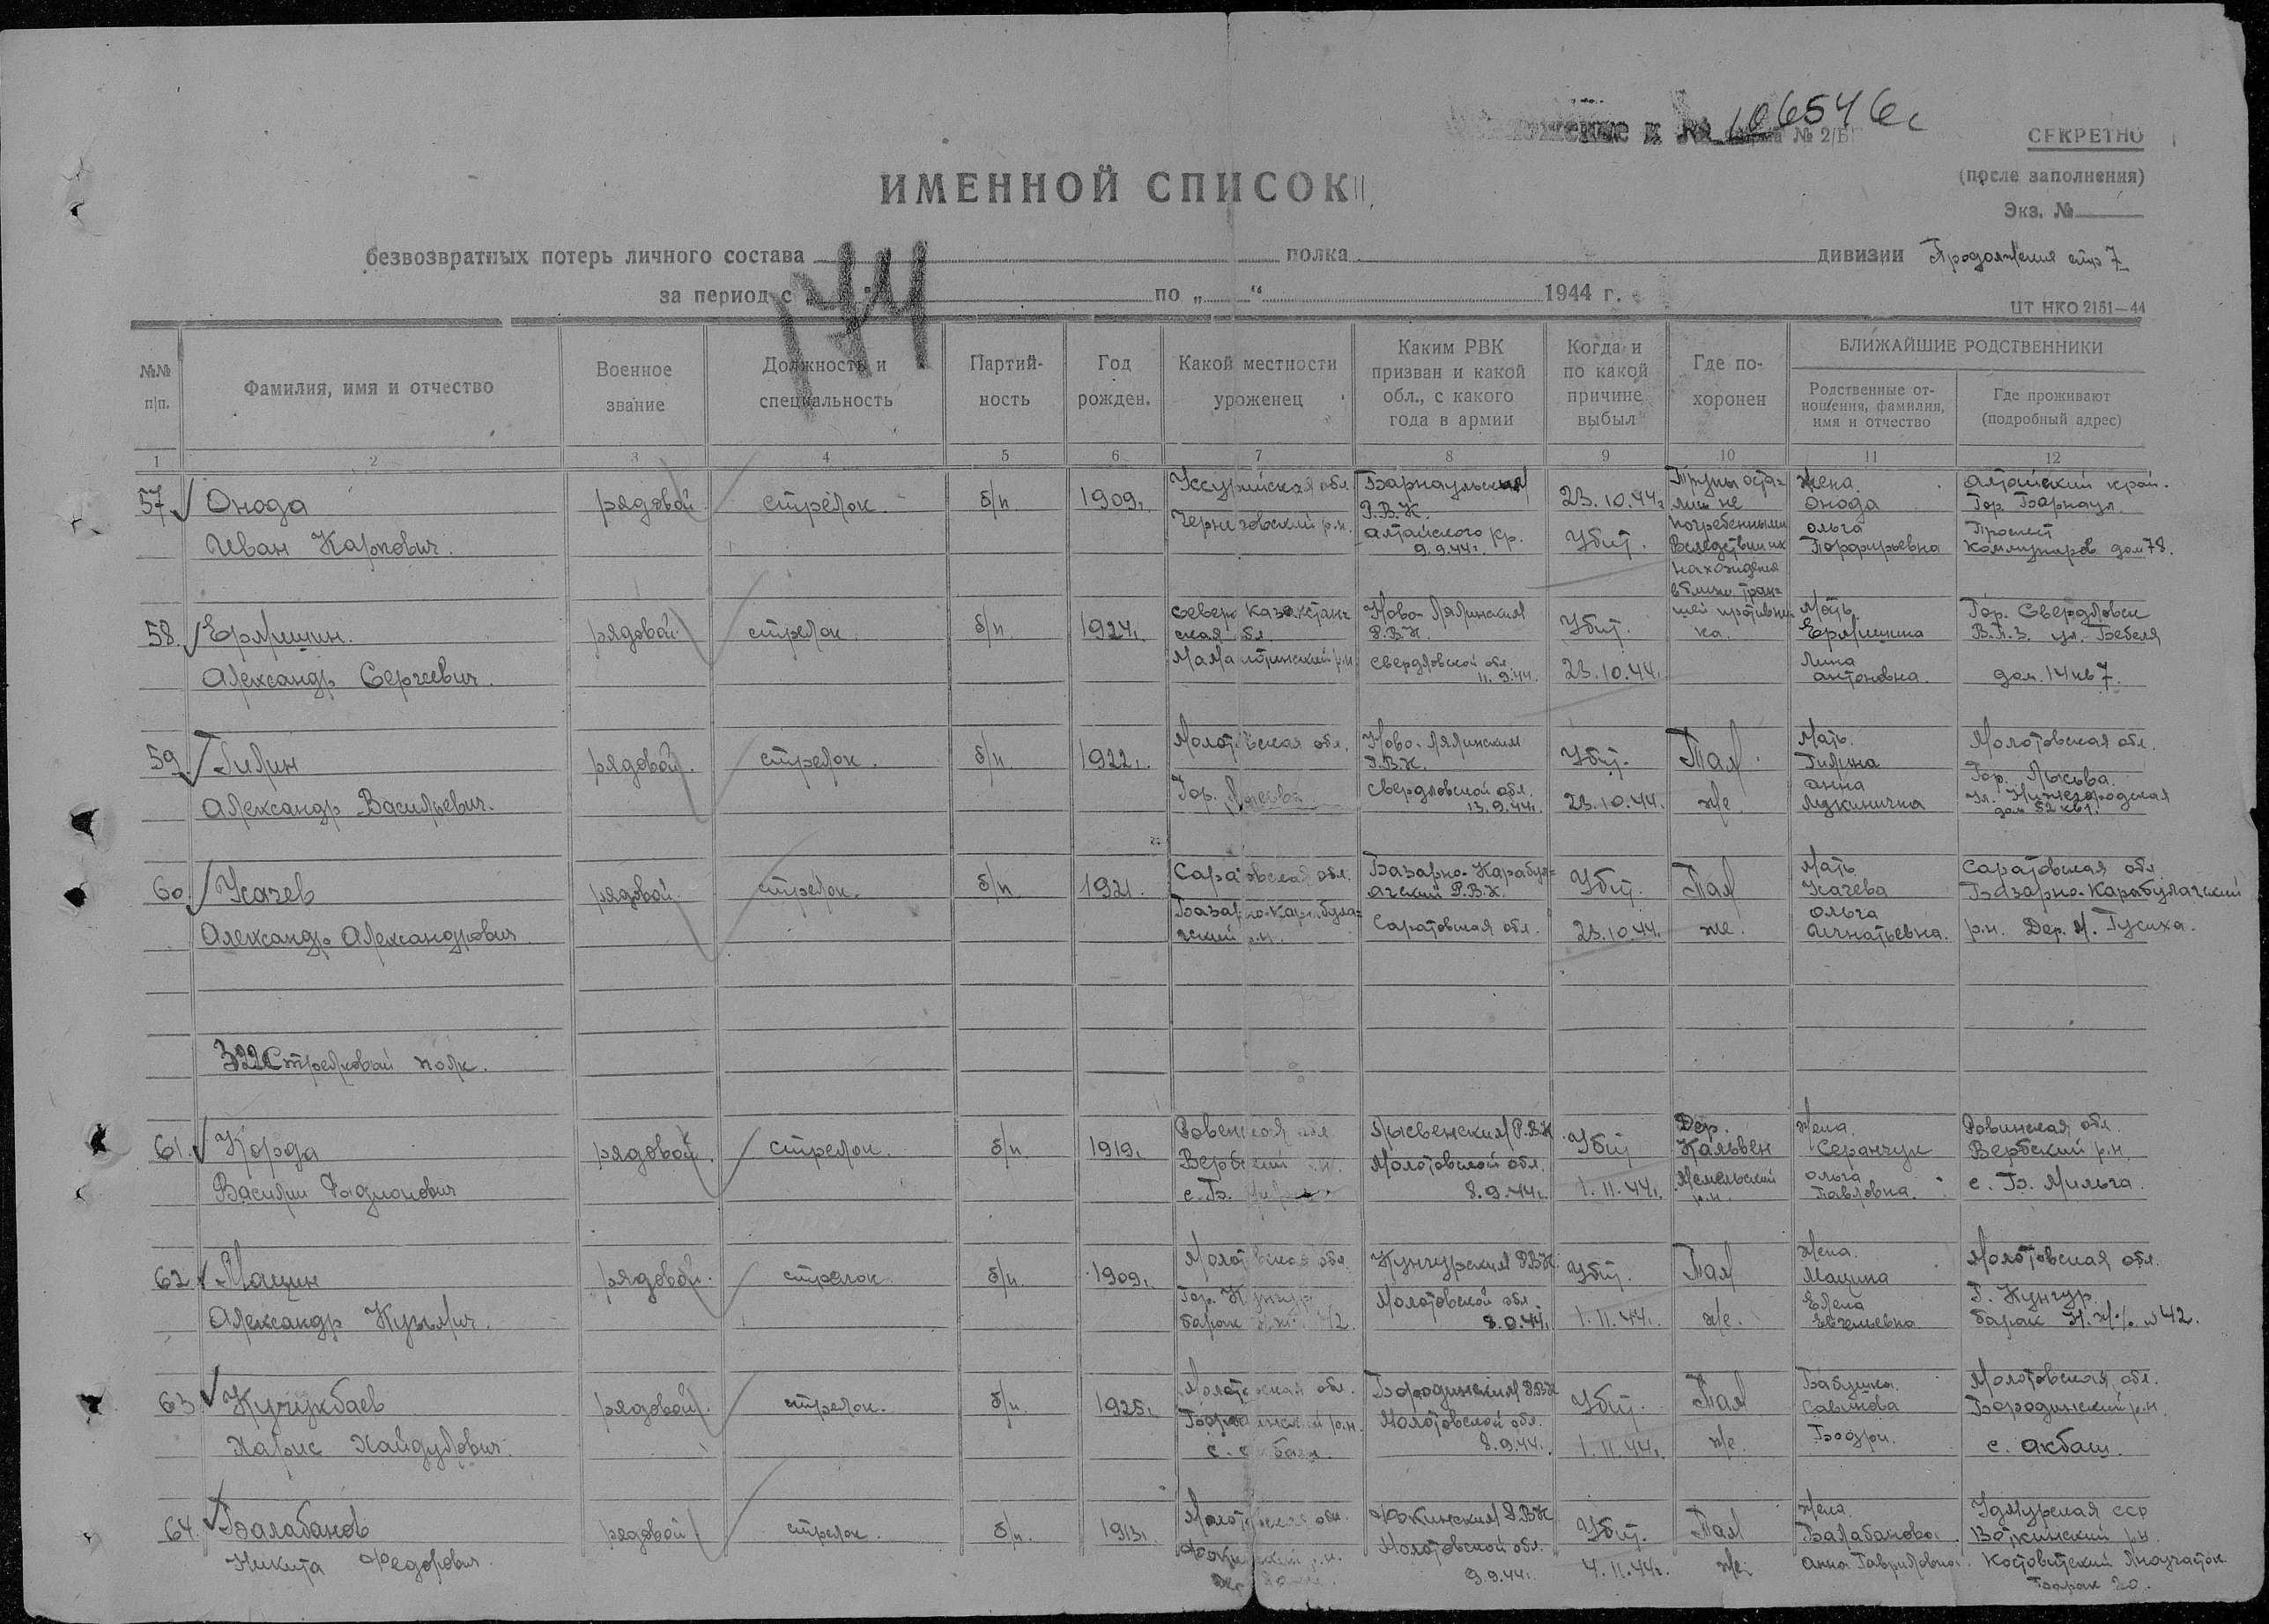 106546с
№ 2/Б
СЕКРЕТНО
(после заполнения)
Экз. №
ИМЕННОЙ СПИСОК
безвозвратных потерь личного состава полка дивизии Продолжение стр 7
за период с по „ “ 1944 г.
174
ЦТ НКО 2151—44
№№ п/п.
Фамилия, имя и отчество
Военное звание
Должность и специальность
Партий-ность
Год рожден.
Какой местности уроженец
Каким РВК призван и какой обл., с какого года в армии
Когда и по какой причине выбыл
Где по-хоронен
БЛИЖАЙШИЕ РОДСТВЕННИКИ
Родственные от-ношения, фамилия, имя и отчество
Где проживают (подробный адрес)
1 2 3 4 5 6 7 8 9 10 11 12
57 Онода рядовой стрелок б/п 1909г. Уссурийская обл. Барнаульским 23.10.44г Трупы оста- жена Алтайский край.
Р.В.К. лись не Онода Гор. Барнаул.
Иван Карпович. Черниговский р.н. Алтайского кр. Убит. погребенными Ольга Проспект
9.9.44г. Вследствии их Порфирьевна Коммунаров дом 78.
нахождения
вблизи тран-
58. Ермишин. рядовой стрелок б/п 1924г. Северо Казахстан- Ново-Лялинским Убит. шей противни- Мать Гор. Свердловск
ская обл. Р.В.К. ка. Ермишина В.И.З. ул. Бебеля
Александр Сергеевич. р.н Свердловской обл 23.10.44. Антоновна. дом. 14 кв 7.
11.9.44.
59 Гилин рядовой. стрелок. б/п. 1922г. Молотовская обл. Ново-Лялинским Убит. Там Мать. Молотовская обл.
Р.В.К. Гилина
Александр Васильевич. Гор. Лысьва Свердловской обл. 23.10.44. же. Анна Гор. Лысьва.
13.9.44г. Лукинична Ул. Нижегородская
дом 52 кв 1.
60 Усачев рядовой. стрелок. б/п 1921. Саратовская обл. Базарно-Карабул- Убит. Там Мать Саратовская обл
ачский Р.В.К. Усачева Базарно-Карабулачский
Александр Александрович Базарно-Карабула- Саратовская обл. 23.10.44. же. Ольга
чский р.н. Игнатьевна. р.н. Дер. М. Гусиха.
322 Стрелковый полк.
61. Корда рядовой. стрелок. б/п. 1919г. Ровенская обл Лысвенским Р.В.К Убит Дер. Жена. Ровинская обл.
Вербский р.н. Молотовской обл. Кальвен Серанчук Вербский р.н.
Василий с. Б. 8.9.44г. 1.11.44г. Мемельский Ольга с. Б. Мильга.
р.н. Павловна.
62 Мацин рядовой. стрелок б/п. 1909г. Молотовская обл. Кунгурским РВК Убит. Там Жена. Молотовская обл.
Мацина
Александр Кузьмич. Гор. Кунгур Молотовской обл. 1.11.44г. же. Елена Г. Кунгур
барак 42. 8.9.44г. Евгеньевна барак № 42.
63 Кучукбаев рядовой. стрелок. б/п. 1925г. Молотовская обл. Бородинским РВК Убит. Там Бабушка. Молотовская обл.
р.н. Молотовской обл. Савинова Бородинский р.н.
Харис Хайдулович. с. 8.9.44г. 1.11.44г. же. с. Акбаш.
64. Балабанов рядовой стрелок. б/п. 1913г. Молотовская обл. Фокинским РВК Убит. Там Жена. Удмурская сср
Молотовской обл. Балабанова Воткинский р.н
Никита Федорович. Фокинский р.н. 9.9.44г. 4.11.44г. же Анна Гавриловна.
Барак 20.